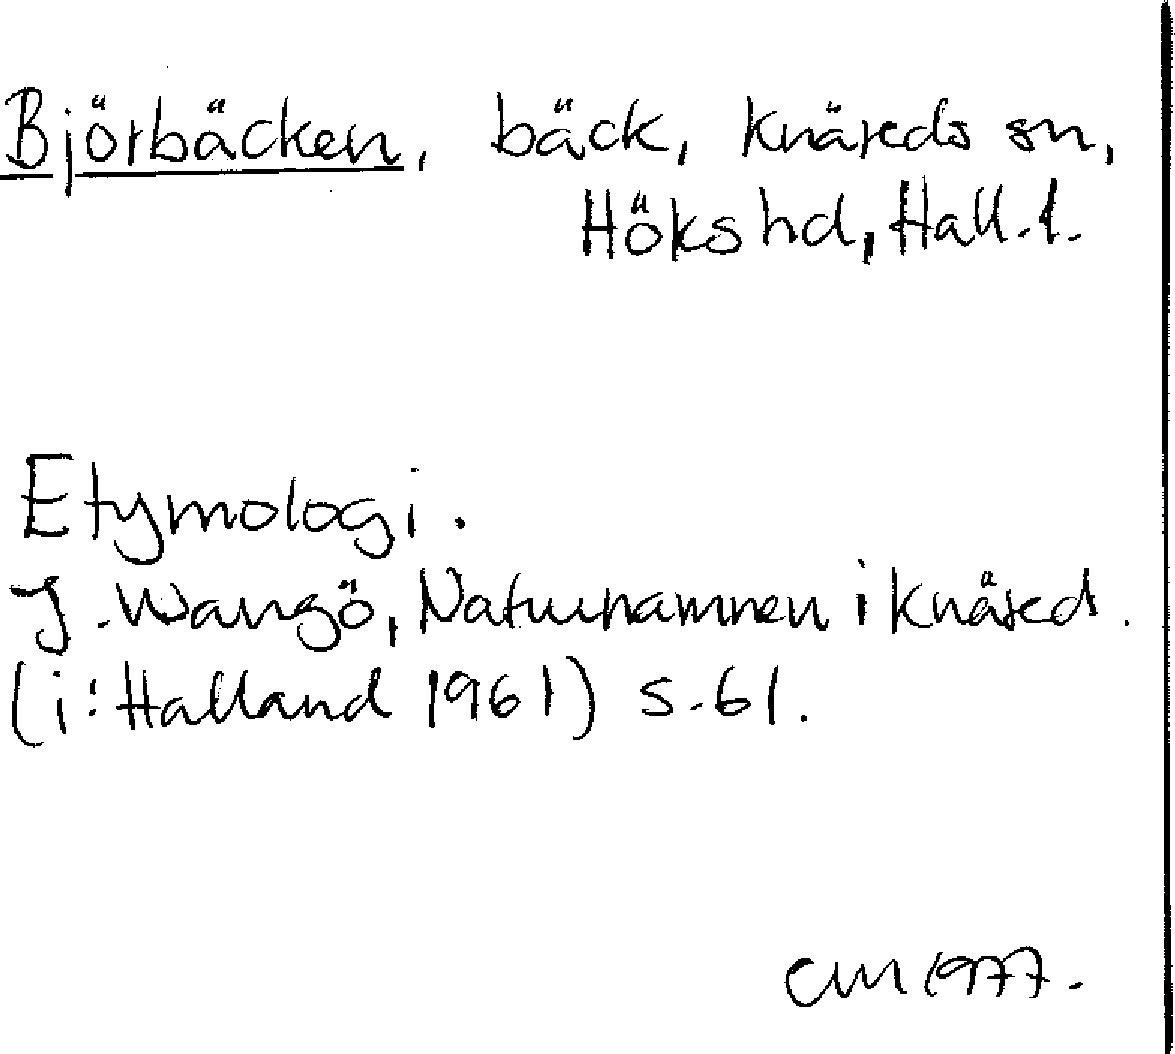 Björbäcken, bäck, Knäreds sn,
Höks hd, Hall. l.
Etymologi.
J. Wangö, Naturnamnen i Knäred.
(i: Halland 1961) s. 61.
CM 1977.